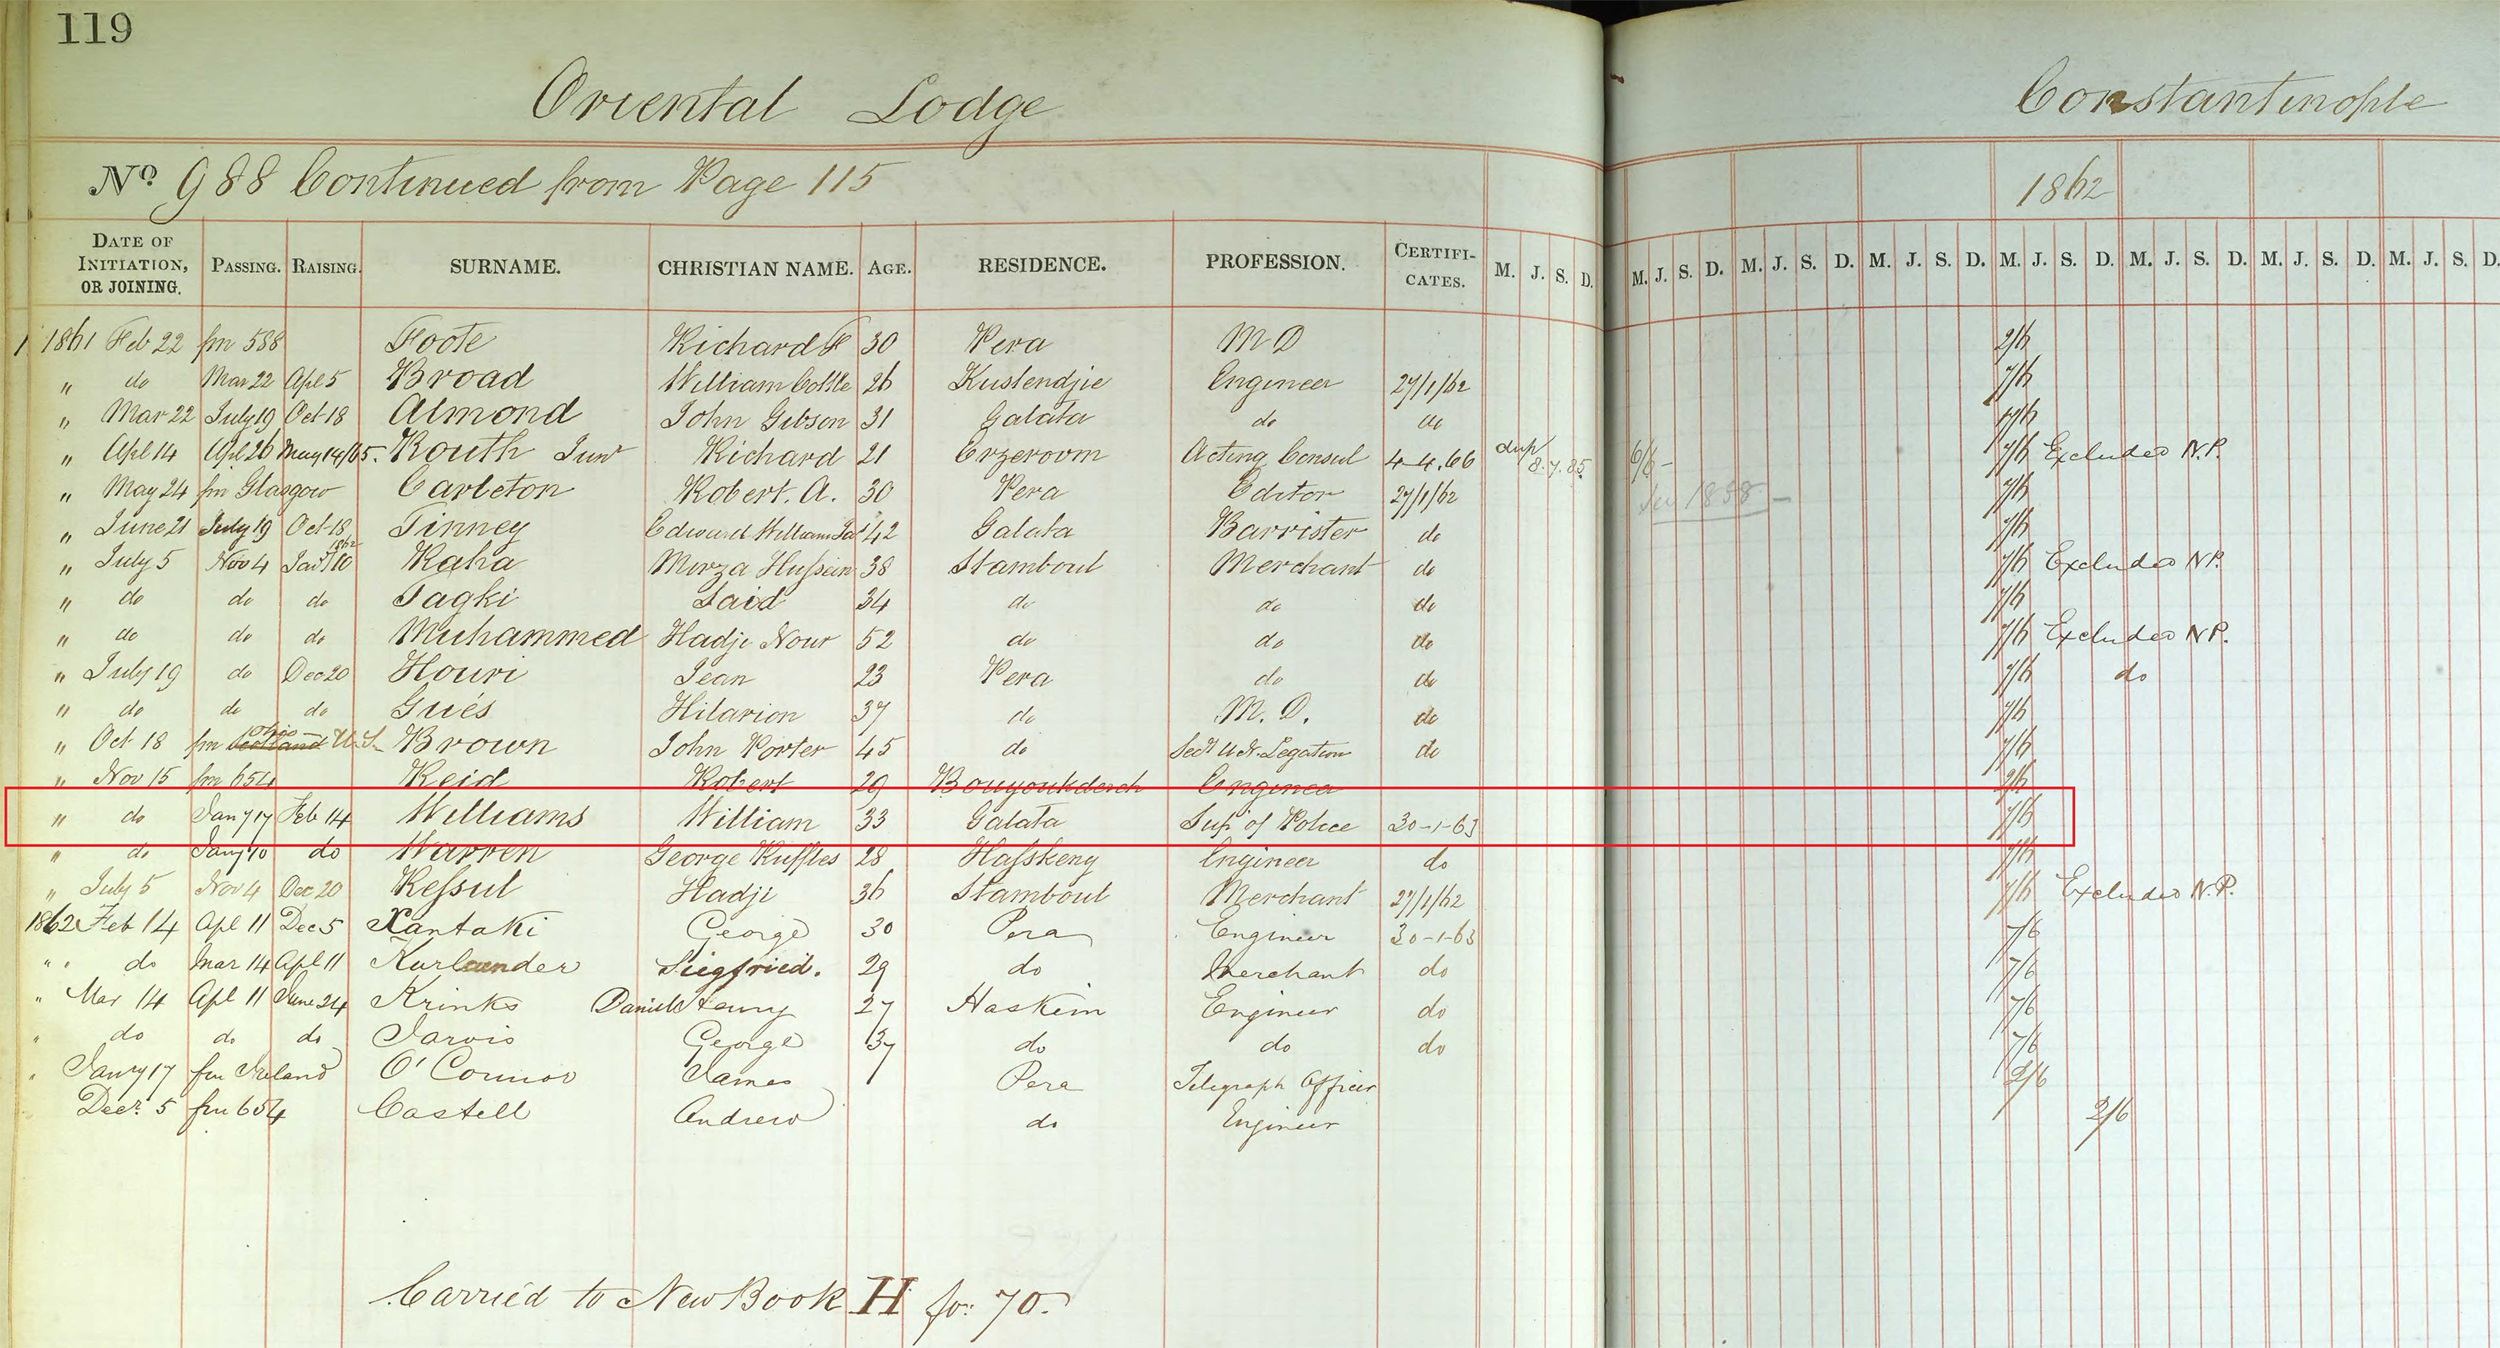 119
Oriental Lodge Constantinople
No. 988 Continued from Page 115 1862
DATE OF INITIATION, OR JOINING. PASSING. RAISING. SURNAME. CHRISTIAN NAME. AGE. RESIDENCE. PROFESSION. CERTIFI-CATES. M. J. S. D. M. J. S. D. M. J. S. D. M. J. S. D. M. J. S. D. M. J. S. D. M. J. S. D. M. J. S. D.
1 1861 Feb 22 fm 588 Foote Richard F 30 Pera M D 2/6
" do Mar 22 Apl 5 Broad William 26 Kustendjie Engineer 27/1/62 7/6
" Mar 22 July 19 Oct 18 Almond John Gibson 31 Galata do do 7/6
" Apl 14 Apl 26 May 14/65. Routh Junr Richard 21 Erzeroom Acting Consul 4-4.66 dup 8.7.85 6/6 - 7/6 Excluded N.P.
" May 24 fm Glasgow Carleton Robert. A. 30 Pera Editor 27/1/62 7/6
" June 21 July 19 Oct 18 Tinney Edward William 42 Galata Barrister do 7/6
" July 5 Nov 4 Jany 10 1862 Kaha Mirza Hussein 38 Stamboul Merchant do 7/6 Excluded N.P.
" do do do Tagki Said 34 do do do 7/6
" do do do Muhammed Hadji Nour 52 do do do 7/6 Excluded N.P.
" July 19 do Dec 20 Houri Jean 23 Pera do do 7/6 do
" do do do Gués Hilarion 37 do M. D. do 7/6
" Oct 18 fm Scotland Ohio U.S. Brown John Porter 45 do Secy U.S. Legation do 7/6
" Nov 15 fm 654 Reid Robert 29 Bouyoukdereh Engineer 2/6
" do Jany 17 Feb 14 Williams William 33 Galata Sup of Police 30-1-63 7/6
" do Jany 10 do Warren George Ruffles 28 Hasskeny Engineer do 7/6
" July 5 Nov 4 Dec 20 Kessul Hadji 36 Stamboul Merchant 27/1/62 7/6 Excluded N.P.
1862 Feb 14 Apl 11 Dec 5 Xantaki George 30 Pera Engineer 30-1-63 7/6
" " do Mar 14 Apl 11 Kurlaender Siegfried. 29 do Merchant do 7/6
" Mar 14 Apl 11 June 24 Krinks Daniel Henry 27 Haskein Engineer do 7/6
" do do do Jarvis George 37 do do do 7/6
" Jany 17 fm Ireland O'Connor James Pera Telegraph Officer 2/6
Decr. 5 fm 654 Castell Andrew do Engineer 2/6
Carried to New Book H fo: 70.